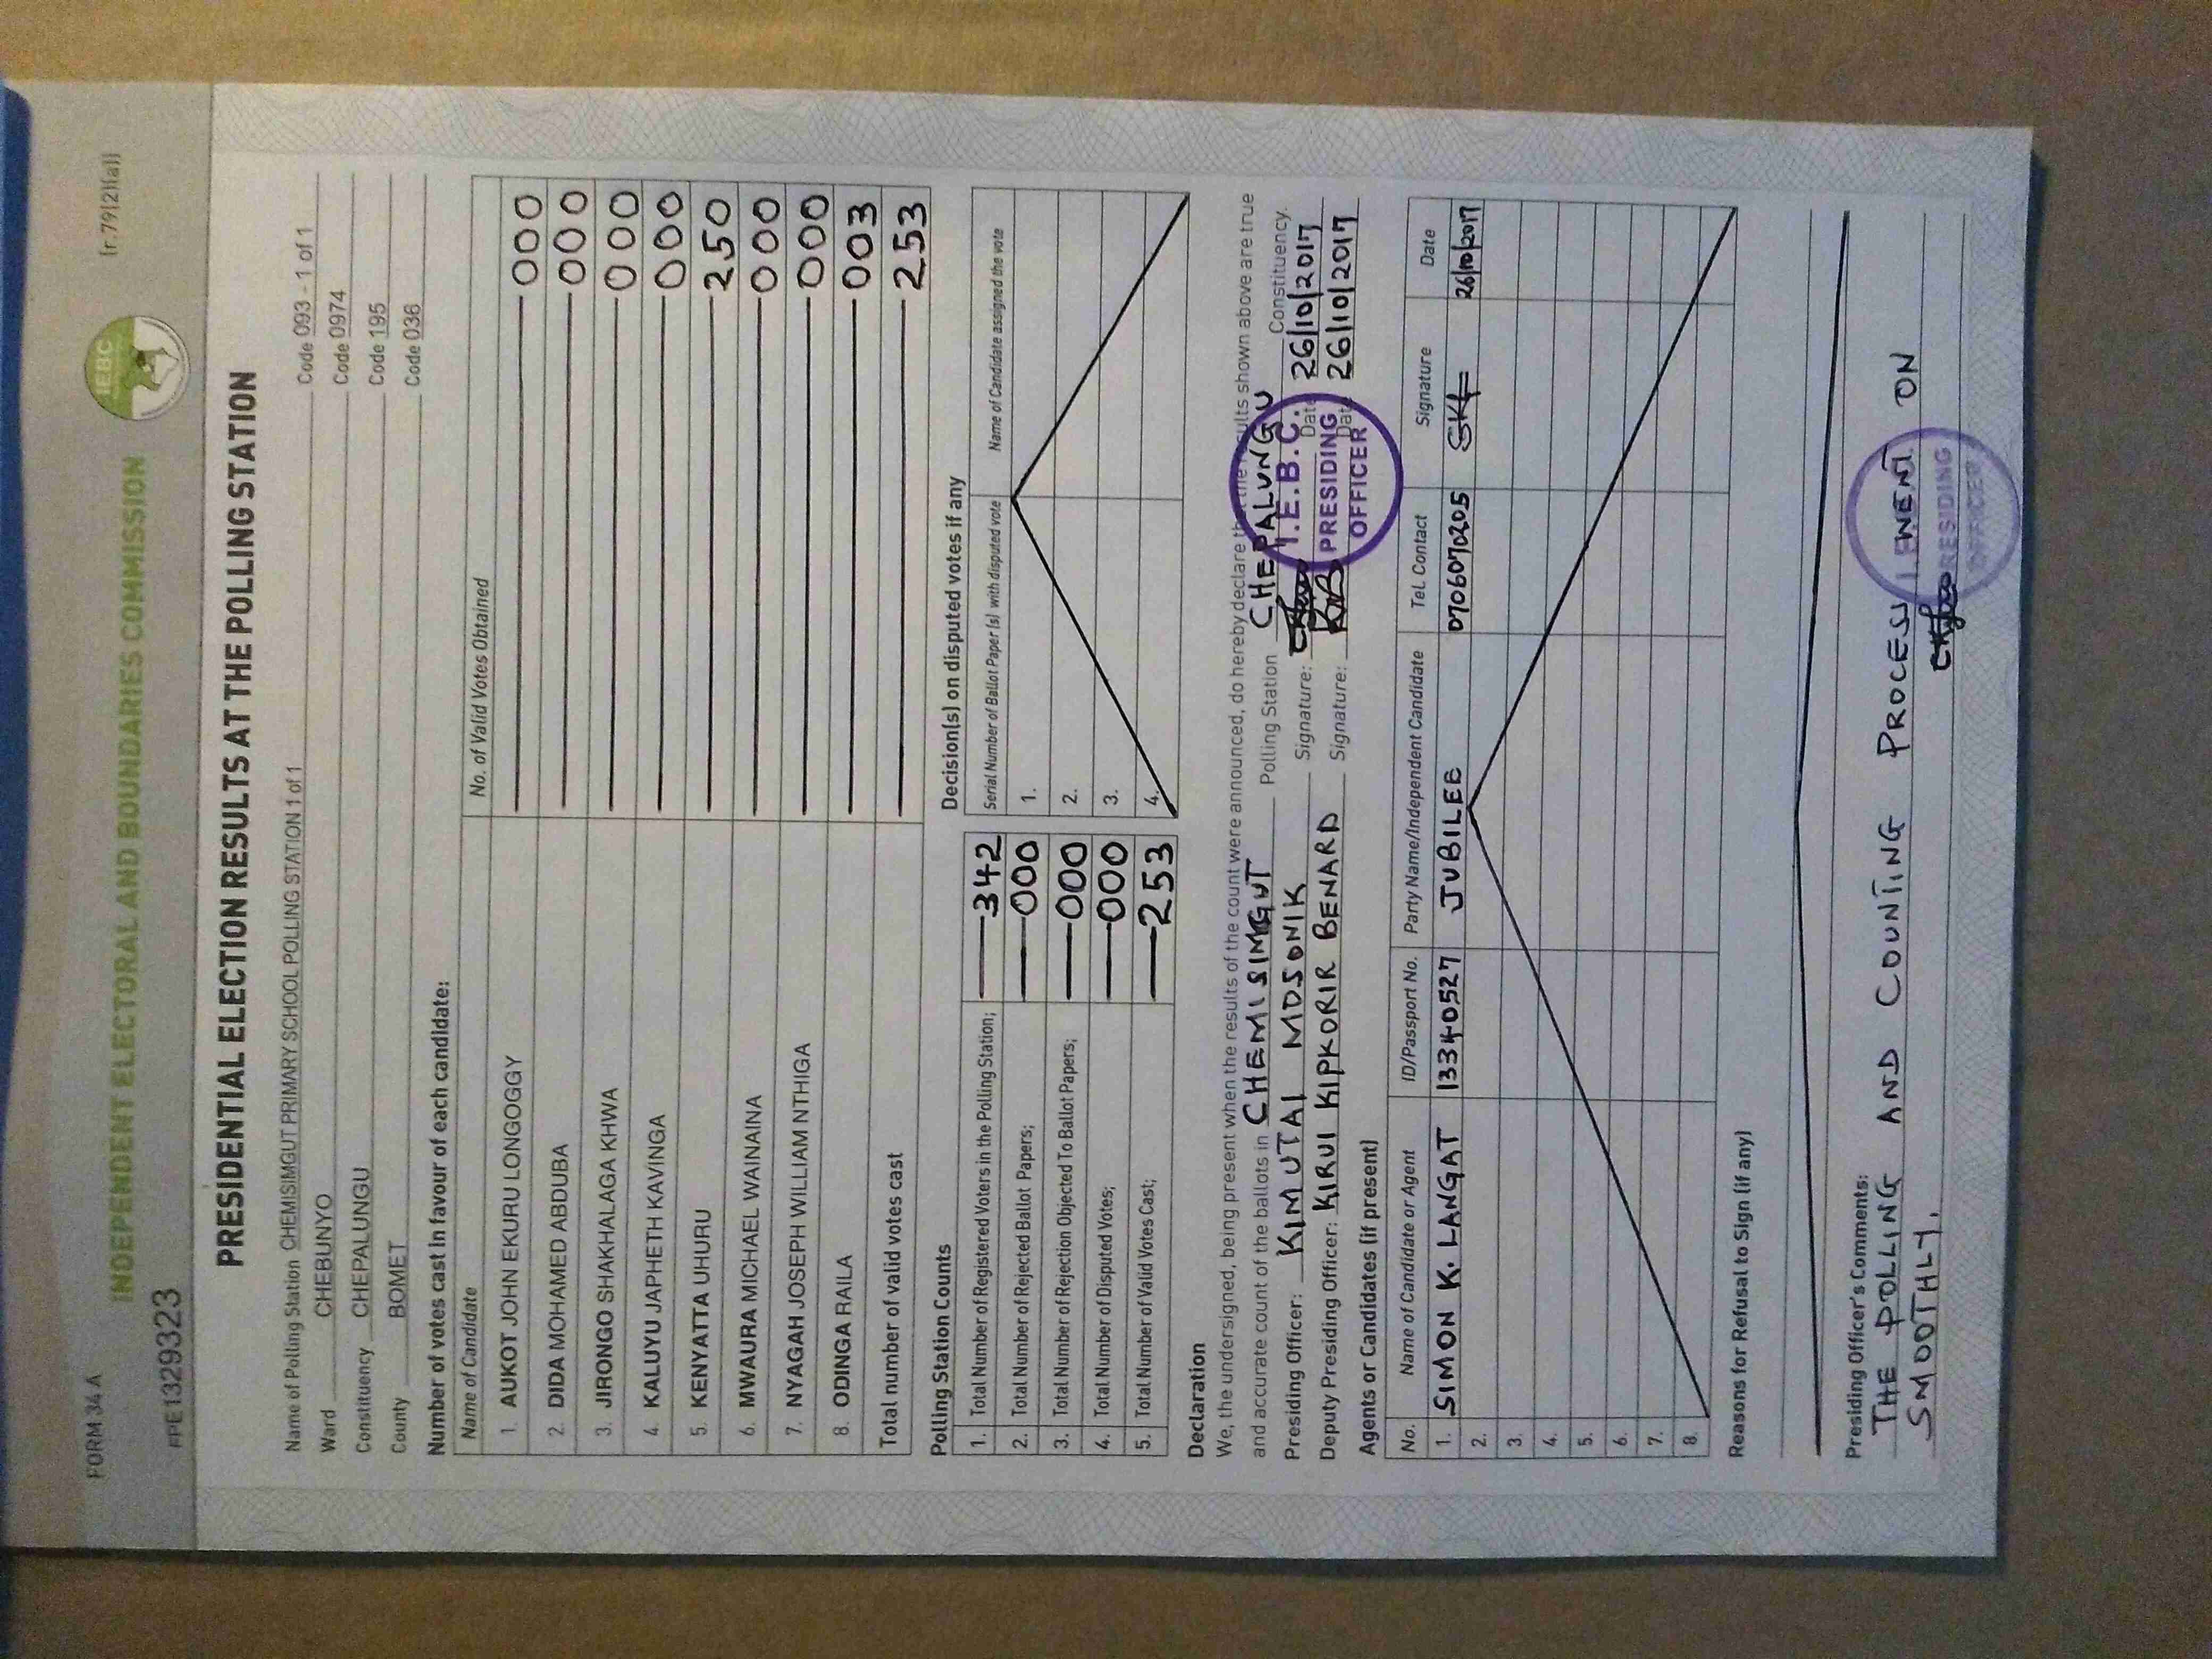 FORM 34 A
(r.79(2)(a))
INDEPENDENT ELECTORAL AND BOUNDARIES COMMISSION
IEBC
PPE1329323
PRESIDENTIAL ELECTION RESULTS AT THE POLLING STATION
Name of Polling Station CHEMISIMGUT PRIMARY SCHOOL POLLING STATION 1 of 1 Code 093 - 1 of 1
Ward CHEBUNYO Code 0974
Constituency CHEPALUNGU Code 195
County BOMET Code 036
Number of votes cast in favour of each candidate:
Name of Candidate No. of Valid Votes Obtained
1. AUKOT JOHN EKURU LONGOGGY 000
2. DIDA MOHAMED ABDUBA 000
3. JIRONGO SHAKHALAGA KHWA 000
4. KALUYU JAPHETH KAVINGA 000
5. KENYATTA UHURU 250
6. MWAURA MICHAEL WAINAINA 000
7. NYAGAH JOSEPH WILLIAM NTHIGA 000
8. ODINGA RAILA 003
Total number of valid votes cast 253
Polling Station Counts
1. Total Number of Registered Voters in the Polling Station; 342
2. Total Number of Rejected Ballot Papers; 000
3. Total Number of Rejection Objected To Ballot Papers; 000
4. Total Number of Disputed Votes; 000
5. Total Number of Valid Votes Cast; 253
Decision(s) on disputed votes if any
Serial Number of Ballot Paper (s) with disputed vote Name of Candidate assigned the vote
1.
2.
3.
4.
Declaration
We, the undersigned, being present when the results of the count were announced, do hereby declare that the results shown above are true
and accurate count of the ballots in CHEMISIMGUT Polling Station CHEPALUNGU Constituency.
Presiding Officer: KIMUTAI MOSONIK Signature: Date 26/10/2017
Deputy Presiding Officer: KIRUI KIPKORIR BENARD Signature: Date 26/10/2017
I.E.B.C.
PRESIDING
OFFICER
Agents or Candidates (if present)
No. Name of Candidate or Agent ID/Passport No. Party Name/Independent Candidate Tel. Contact Signature Date
1. SIMON K. LANGAT 13340527 JUBILEE 0706070205 26/10/2017
2.
3.
4.
5.
6.
7.
8.
Reasons for Refusal to Sign (if any)
Presiding Officer's Comments:
THE POLLING AND COUNTING PROCESS WENT ON
SMOOTHLY.
PRESIDING
OFFICER